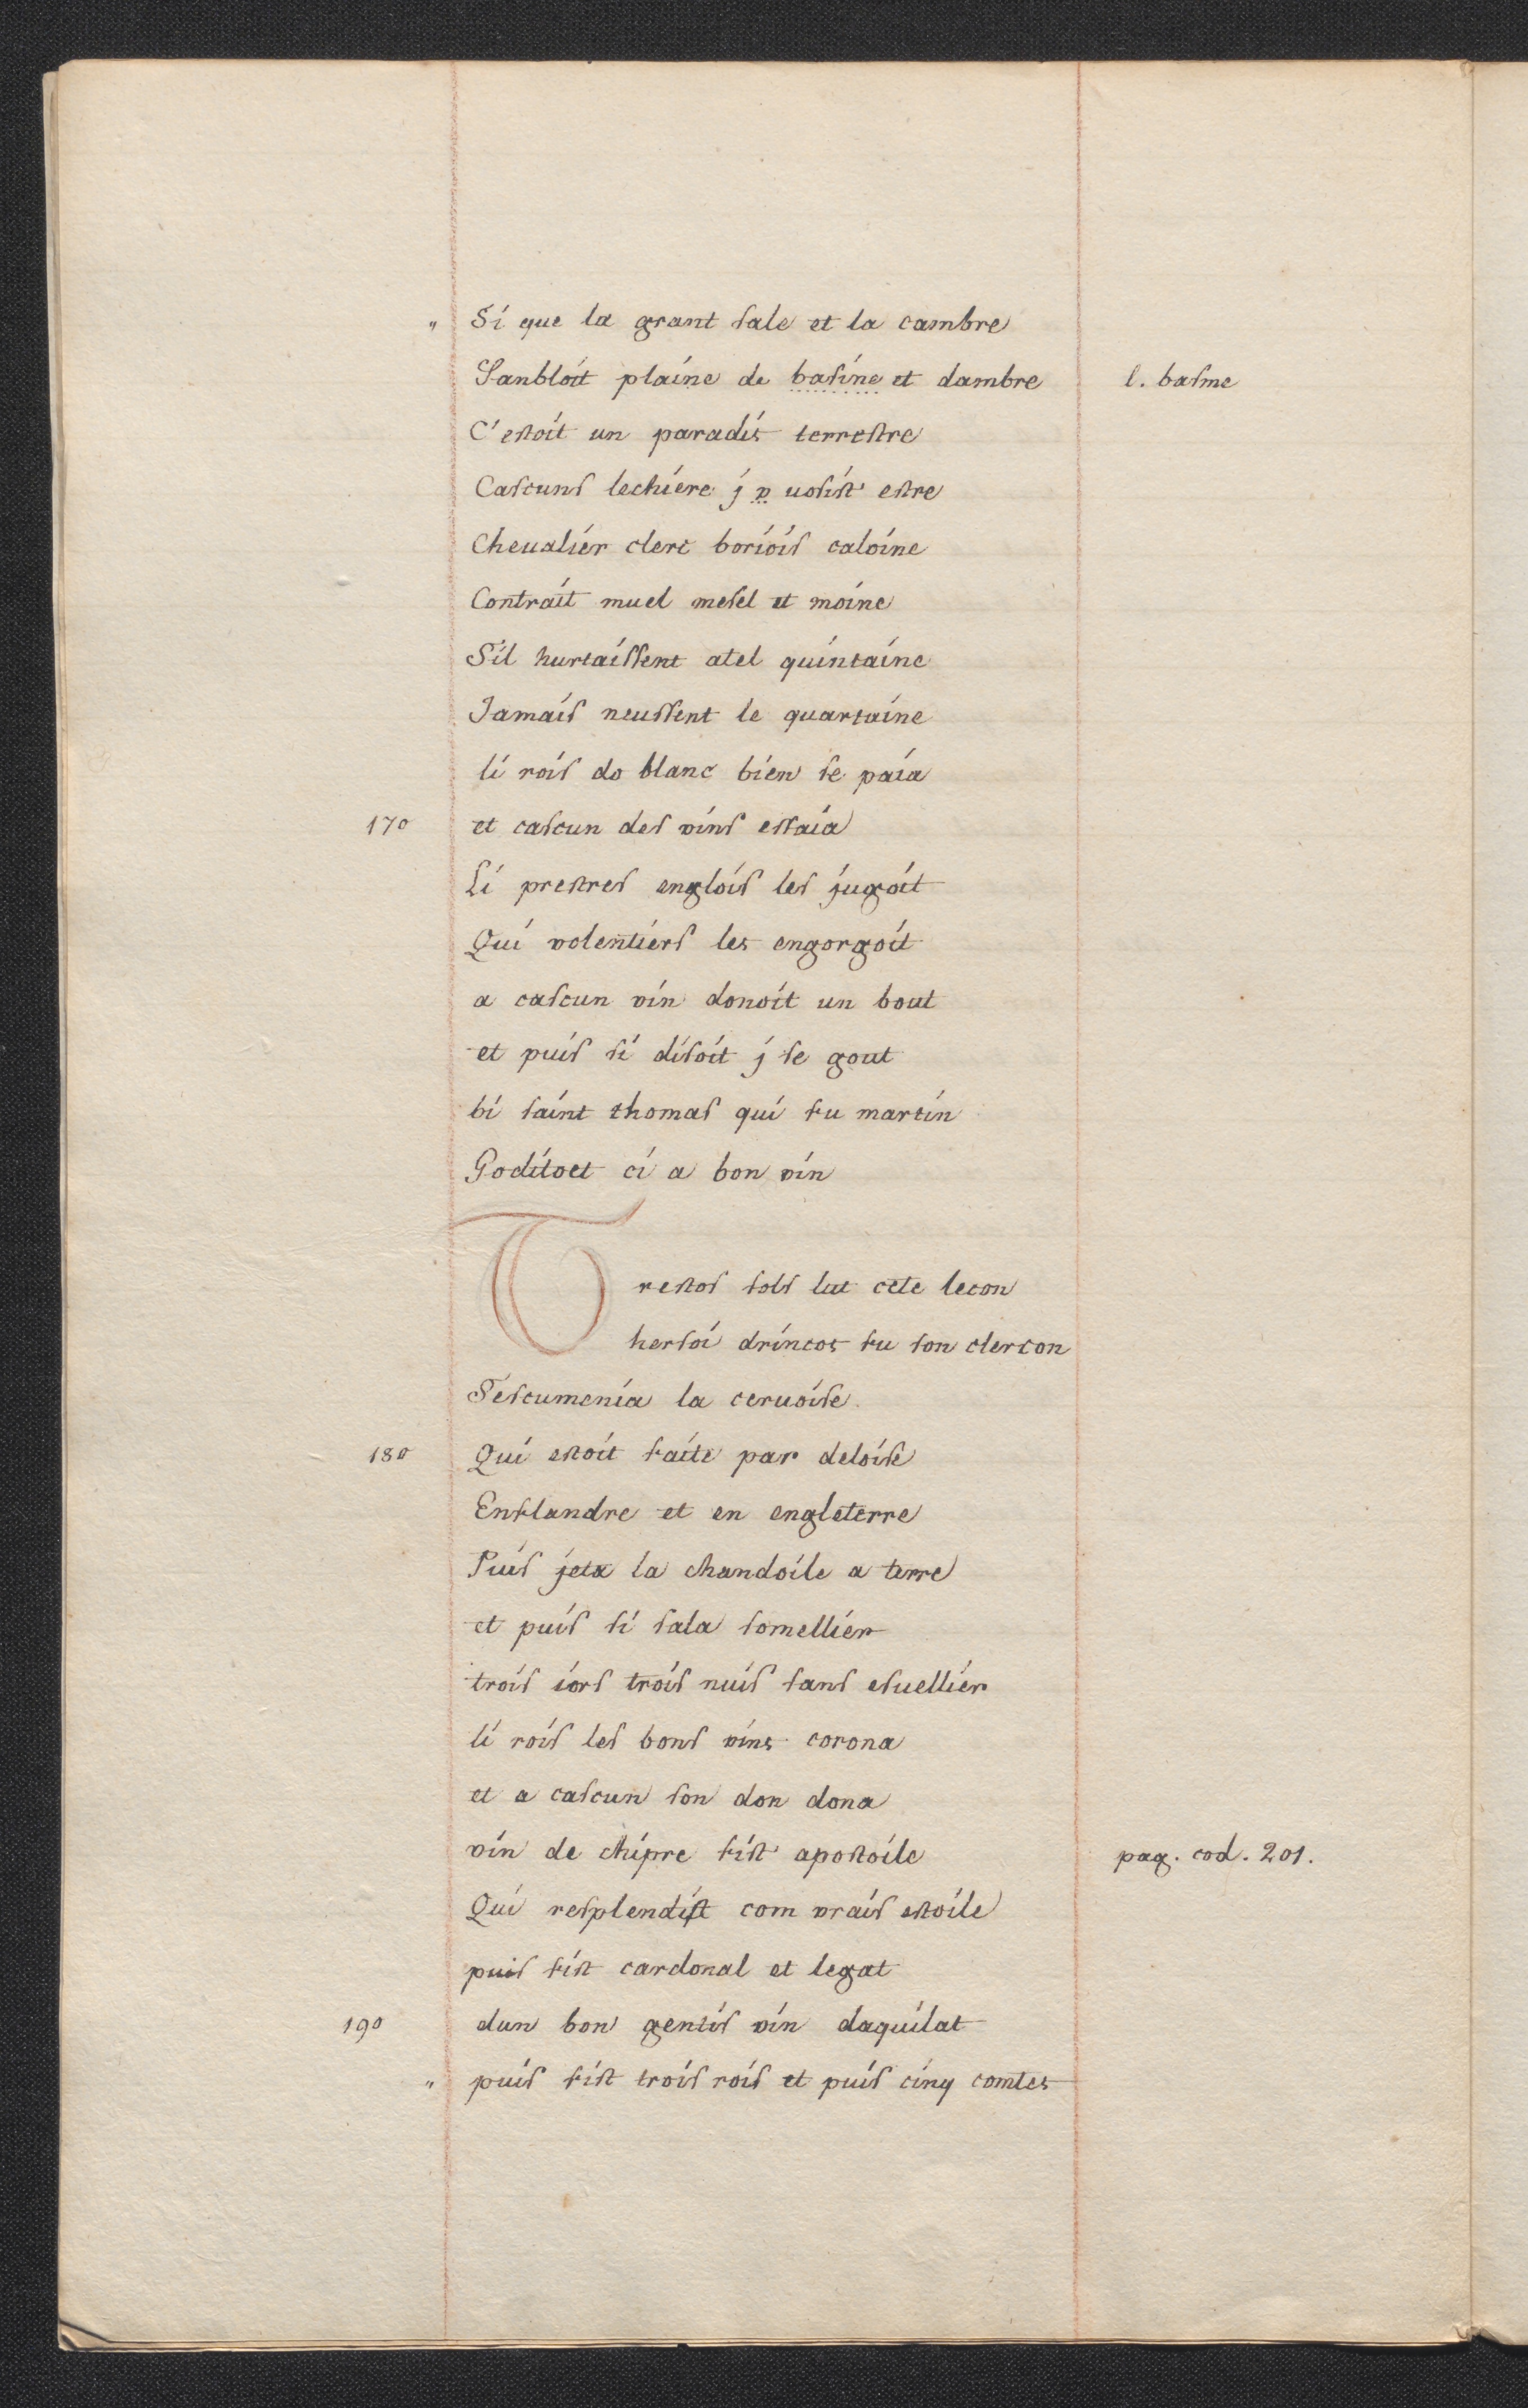 " Si que la grant sale et la cambre
Sanbloit plaine de basine et dambre l. basme
C'estoit un paradis terrestre
Cascuns lechiere j p uosist estre
Cheualier clerc boriois caloine
Contrait muel mesel et moine
Sil hurtaissent atel quintaine
Jamais neussent le quartaine
li rois do blanc bien se paia
170 et cascun des vins essaia
Li prestres englois les jugoit
Qui volentiers les engorgoit
a cascun vin donoit un bout
et puis si disoit j se gout
bi saint thomas qui fu martin
Goditoet ci a bon vin
Trestos sols lut cete lecon
hersoi drincos fu son clercon
Sescumenia la ceruoise
180 Qui estoit faite par deloise
Enflandre et en engleterre
Puis jeta la chandoile a terre
et puis si sala somellier
trois iors trois nuis sans esuellier
li rois les bons vins corona
et a cascun son don dona
vin de chipre fist apostoile pag. cod. 201.
Qui resplendist com vrais estoile
puis fist cardonal et legat
190 dun bon gentis vin daquilat
" puis fist trois rois et puis cinq comtes